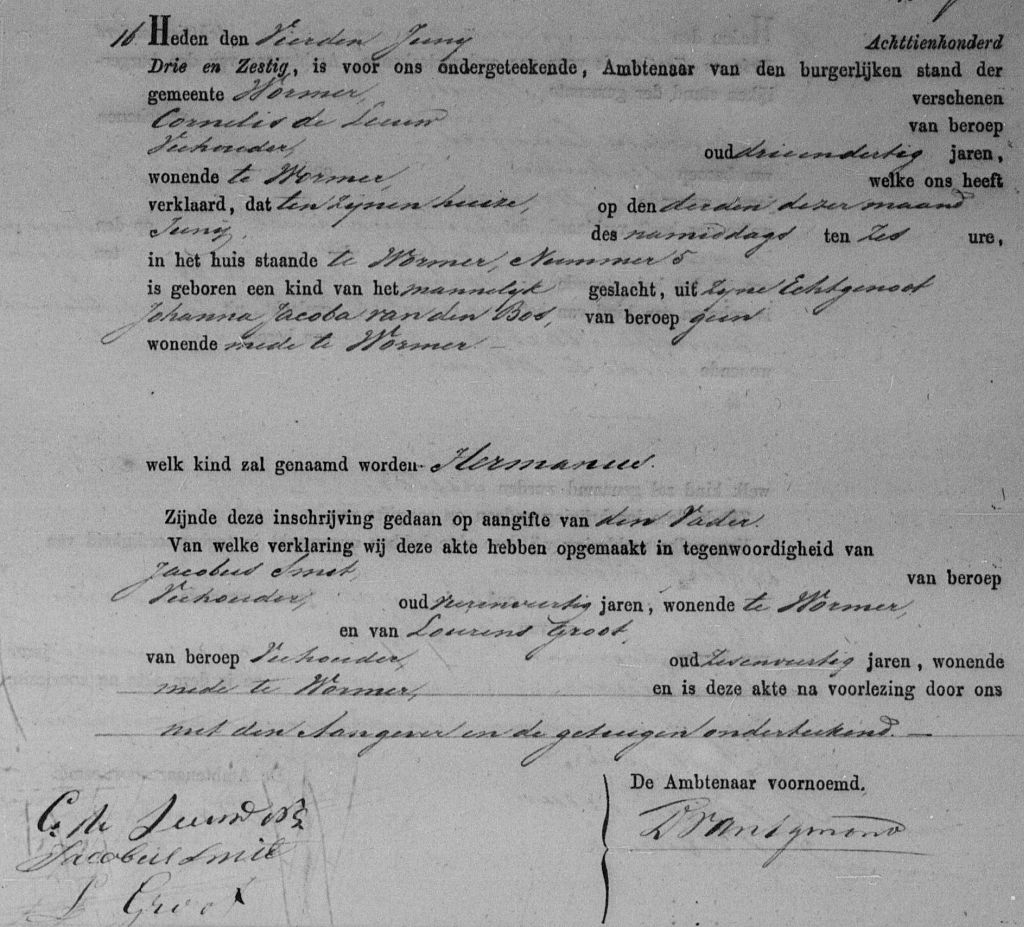 16 Heden den Vierden Juny Achttienhonderd
Drie en Zestig, is voor ons ondergeteekende, Ambtenaar van den burgerlijken stand der
gemeente Wormer, verschenen
Cornelis de Leeuw van beroep
Veehouder, oud drieendertig jaren,
wonende te Wormer, welke ons heeft
verklaard, dat ten zynen huize, op den derden dezer maand
Juny. des namiddags ten zes ure,
in het huis staande te Wormer, Nummer 5
is geboren een kind van het mannelyk geslacht, uit zyne Echtgenoot
Johanna Jacoba van den Bos, van beroep geen
wonende mede te Wormer.
welk kind zal genaamd worden Hermanus.
Zijnde deze inschrijving gedaan op aangifte van den Vader.
Van welke verklaring wij deze akte hebben opgemaakt in tegenwoordigheid van
Jacobus Smit, van beroep
Veehouder, oud jaren, wonende te Wormer,
en van Lourens Groot,
van beroep Veehouder, oud zesenveertig jaren, wonende
mede te Wormer, en is deze akte na voorlezing door ons
met den Aangever en de getuigen onderteekend.
De Ambtenaar voornoemd.
C. de Leeuw
Jacobus Smit
L Groot